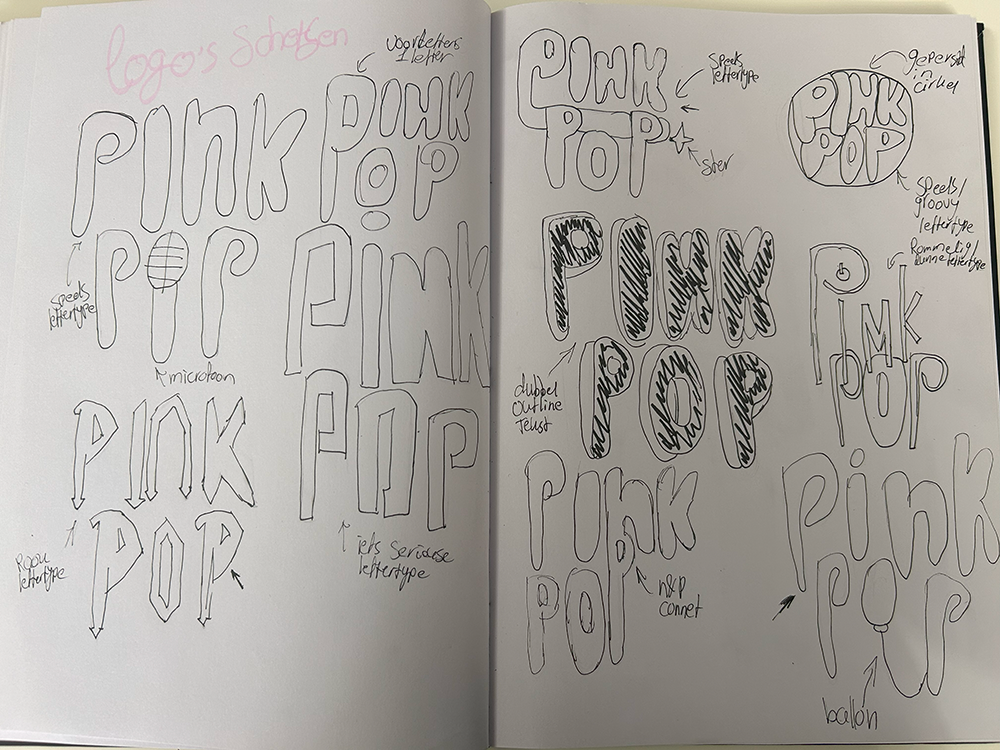 logo's Schetsen
voorletters
1 letter
PInk
PoP
speels
lettertype
microfoon
PINK
POP
Pink
POP
iets serieuse
lettertype
PInK
POP
lettertype
PINK
POP
speels
lettertype
ster
PINK
POP
geperst
in
cirkel
speels/
groovy
lettertype
PINK
POP
dubbel
outline
Tekst
Pink
POP
Rommelig/
dunne lettertype
PInk
POP
n&p
connet
Pink
POP
ballon